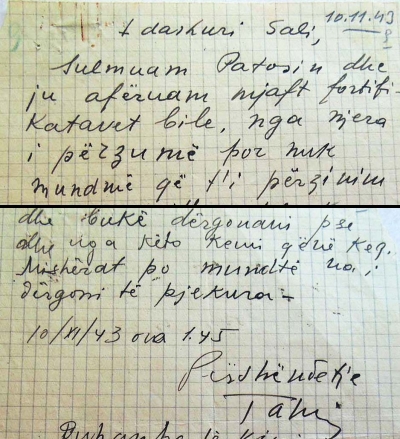 10.11.43
I dashuri Sali,
Sulmuam Patosin dhe
ju afëruam mjaft fortifi-
katavet bile, nga njera
i përzumë por nuk
mundmë që t'i përzinim
dhe bukë dërgonani pse
dhe nga këto kemi qënë keq.
Mishërat po mundtë na i
dërgoni të pjekura -
10/XI/43 ora 1.45
Përshëndetje